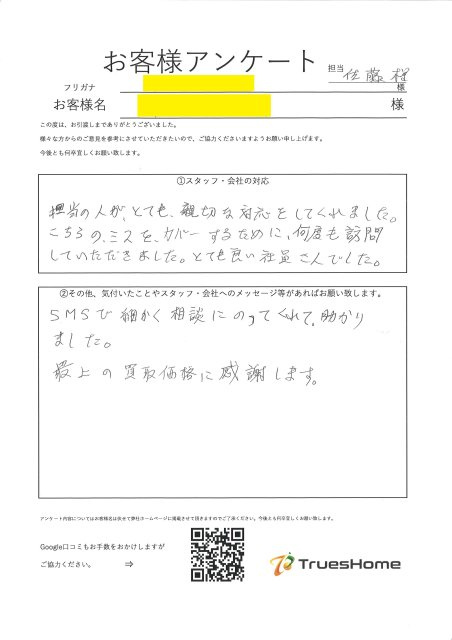 お客様アンケート
担当 佐藤 様
フリガナ 様
お客様名 様
この度は、お引渡しまでありがとうございました。
様々な方からのご意見を参考にさせていただきたいので、ご協力くださいますようお願い申し上げます。
今後とも何卒宜しくお願い致します。
①スタッフ・会社の対応
担当の人が、とても、親切な対応をしてくれました。
こちらの、ミスを、カバーするために、何度も訪問
していただきました。とても良い社員さんでした。
②その他、気付いたことやスタッフ・会社へのメッセージ等があればお願い致します。
SMSで細かく相談にのってくれて、助かり
ました。
最上の買取価格に感謝します。
アンケート内容についてはお客様名は伏せて弊社ホームページに掲載させて頂きますのでご了承ください。今後とも何卒宜しくお願い致します。
Google口コミもお手数をおかけしますが
ご協力ください。 ⇒
TruesHome